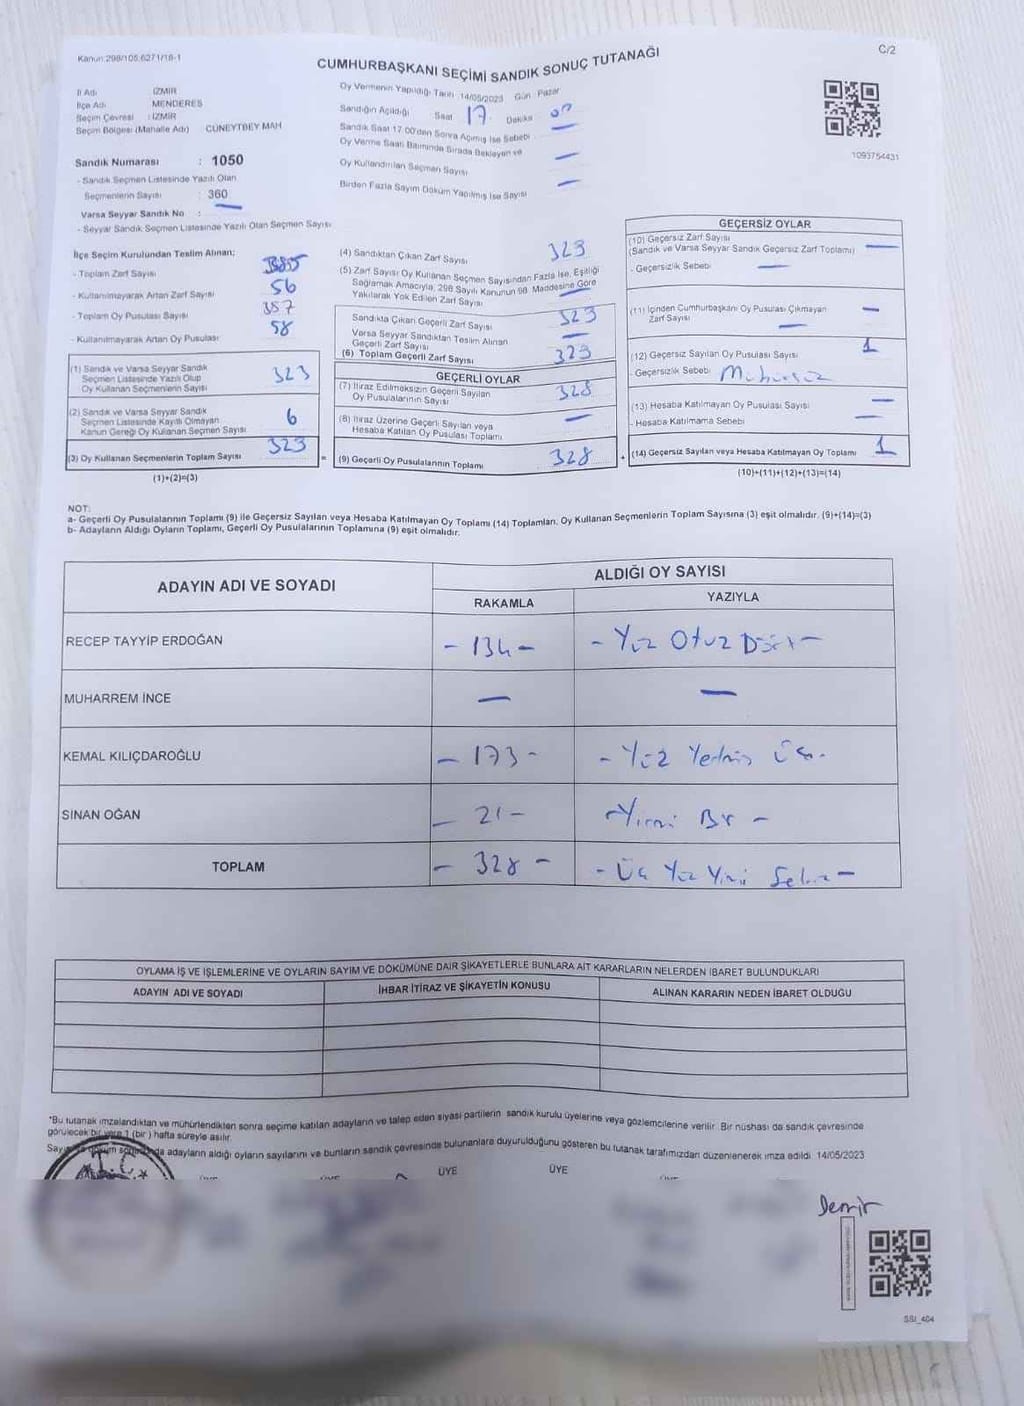 Kanun:298/105.6271/18-1
C/2
CUMHURBAŞKANI SEÇİMİ SANDIK SONUÇ TUTANAĞI
İl Adı : İZMİR
İlçe Adı : MENDERES
Seçim Çevresi : İZMİR
Seçim Bölgesi (Mahalle Adı) CÜNEYTBEY MAH
Sandık Numarası : 1050
- Sandık Seçmen Listesinde Yazılı Olan
Seçmenlerin Sayısı : 360
Varsa Seyyar Sandık No : —
- Seyyar Sandık Seçmen Listesinde Yazılı Olan Seçmen Sayısı
Oy Vermenin Yapıldığı Tarih :14/05/2023 Gün Pazar
Sandığın Açıldığı Saat 17 Dakika
Sandık Saat 17.00'den Sonra Açılmış İse Sebebi —
Oy Verme Saati Bitiminde Sırada Bekleyen ve
Oy Kullandırılan Seçmen Sayısı —
Birden Fazla Sayım Döküm Yapılmış İse Sayısı —
1093754431
İlçe Seçim Kurulundan Teslim Alınan;
- Toplam Zarf Sayısı
- Kullanılmayarak Artan Zarf Sayısı 56
- Toplam Oy Pusulası Sayısı 387
- Kullanılmayarak Artan Oy Pusulası 58
(1) Sandık ve Varsa Seyyar Sandık
Seçmen Listesinde Yazılı Olup
Oy Kullanan Seçmenlerin Sayısı 323
(2) Sandık ve Varsa Seyyar Sandık
Seçmen Listesinde Kayıtlı Olmayan
Kanun Gereği Oy Kullanan Seçmen Sayısı 6
(3) Oy Kullanan Seçmenlerin Toplam Sayısı 323 =
(1)+(2)=(3)
(4) Sandıktan Çıkan Zarf Sayısı 323
(5) Zarf Sayısı Oy Kullanan Seçmen Sayısından Fazla İse, Eşitliği
Sağlamak Amacıyla, 298 Sayılı Kanunun 98. Maddesine Göre
Yakılarak Yok Edilen Zarf Sayısı —
Sandıkta Çıkan Geçerli Zarf Sayısı 323
Varsa Seyyar Sandıktan Teslim Alınan
Geçerli Zarf Sayısı —
(6) Toplam Geçerli Zarf Sayısı 323
GEÇERLİ OYLAR
(7) İtiraz Edilmeksizin Geçerli Sayılan
Oy Pusulalarının Sayısı 328
(8) İtiraz Üzerine Geçerli Sayılan veya
Hesaba Katılan Oy Pusulası Toplamı —
(9) Geçerli Oy Pusulalarının Toplamı 328 +
GEÇERSİZ OYLAR
(10) Geçersiz Zarf Sayısı
(Sandık ve Varsa Seyyar Sandık Geçersiz Zarf Toplamı) —
- Geçersizlik Sebebi —
(11) İçinden Cumhurbaşkanı Oy Pusulası Çıkmayan —
Zarf Sayısı —
(12) Geçersiz Sayılan Oy Pusulası Sayısı 1
- Geçersizlik Sebebi Mühürsüz
(13) Hesaba Katılmayan Oy Pusulası Sayısı —
- Hesaba Katılmama Sebebi —
(14) Geçersiz Sayılan veya Hesaba Katılmayan Oy Toplamı 1
(10)+(11)+(12)+(13)=(14)
NOT:
a- Geçerli Oy Pusulalarının Toplamı (9) ile Geçersiz Sayılan veya Hesaba Katılmayan Oy Toplamı (14) Toplamları, Oy Kullanan Seçmenlerin Toplam Sayısına (3) eşit olmalıdır. (9)+(14)=(3)
b- Adayların Aldığı Oyların Toplamı, Geçerli Oy Pusulalarının Toplamına (9) eşit olmalıdır.
ADAYIN ADI VE SOYADI
ALDIĞI OY SAYISI
RAKAMLA YAZIYLA
RECEP TAYYİP ERDOĞAN - 134 - - Yüz Otuz Dört -
MUHARREM İNCE — —
KEMAL KILIÇDAROĞLU - 173 - - Yüz Yetmiş Üç -
SİNAN OĞAN - 21 - - Yirmi Bir -
TOPLAM - 328 - - Üç Yüz Yirmi Sekiz -
OYLAMA İŞ VE İŞLEMLERİNE VE OYLARIN SAYIM VE DÖKÜMÜNE DAİR ŞİKAYETLERLE BUNLARA AİT KARARLARIN NELERDEN İBARET BULUNDUKLARI
ADAYIN ADI VE SOYADI İHBAR İTİRAZ VE ŞİKAYETİN KONUSU ALINAN KARARIN NEDEN İBARET OLDUĞU
*Bu tutanak imzalandıktan ve mühürlendikten sonra seçime katılan adayların ve talep eden siyasi partilerin sandık kurulu üyelerine veya gözlemcilerine verilir. Bir nüshası da sandık çevresinde
görülecek bir yere 1 (bir ) hafta süreyle asılır.
adayların aldığı oyların sayılarını ve bunların sandık çevresinde bulunanlara duyurulduğunu gösteren bu tutanak tarafımızdan düzenlenerek imza edildi. 14/05/2023
T.C.
ÜYE ÜYE
Demir
SSI_404